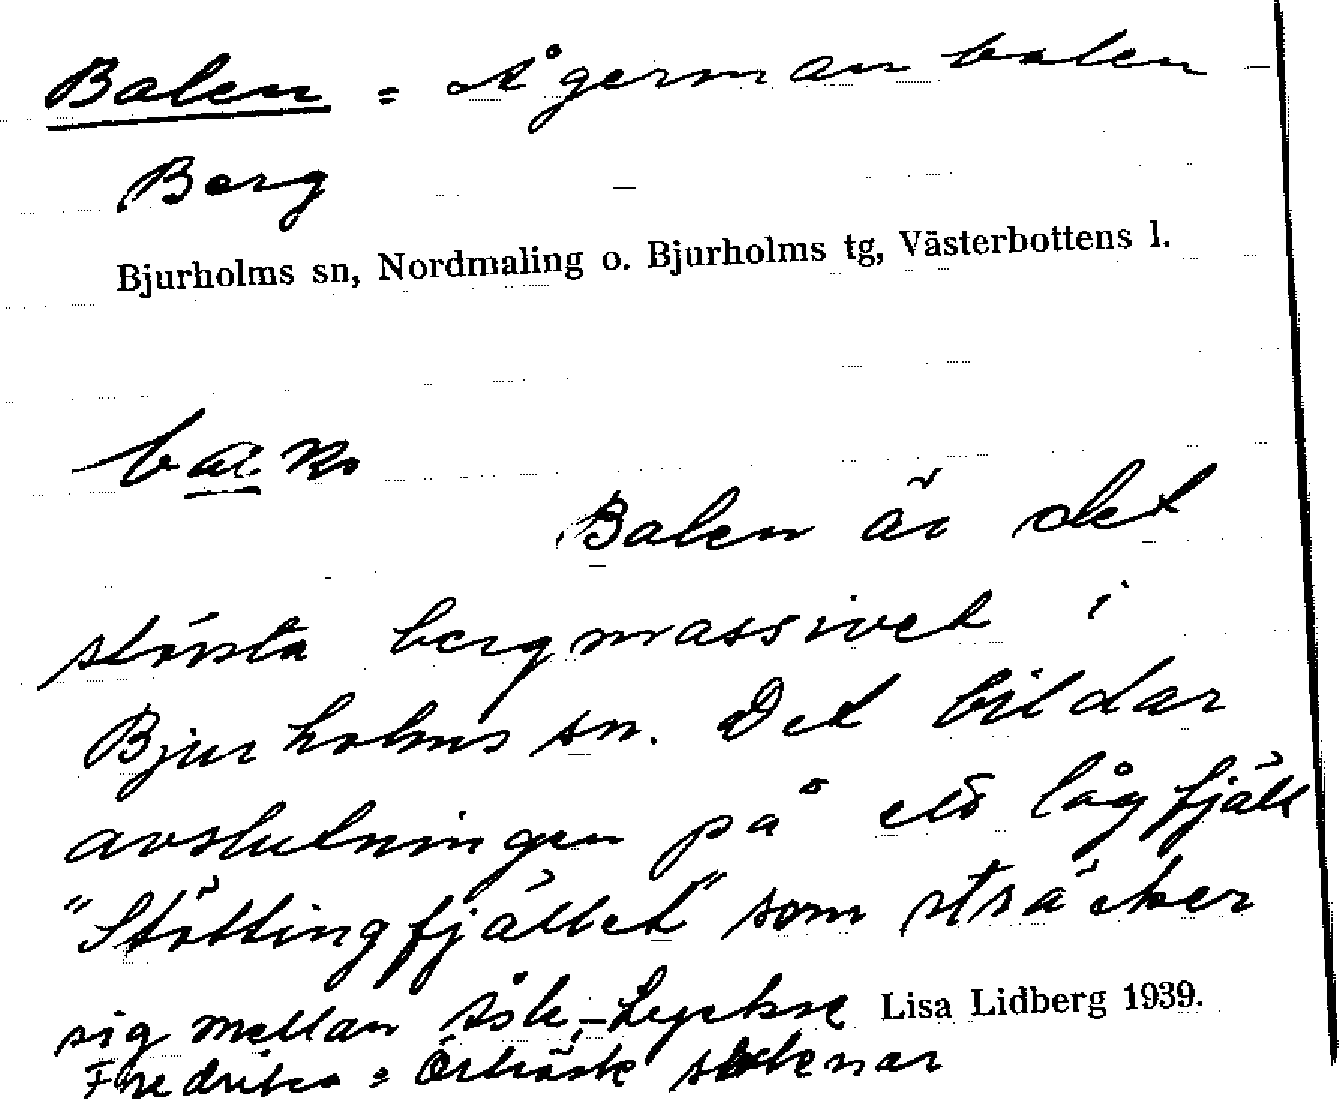 Balen = Ågermanbalen
Berg
Bjurholms sn, Nordmaling o. Bjurholms tg, Västerbottens l.
Balen är det
största bergmassivet i
Bjurholms sn. Det bildar
avslutningen på ett lågfjäll
"Stöttingfjället" som sträcker
sig mellan Åsle, Lycksele
Lisa Lidberg 1939.
Fredrika = Örträsk